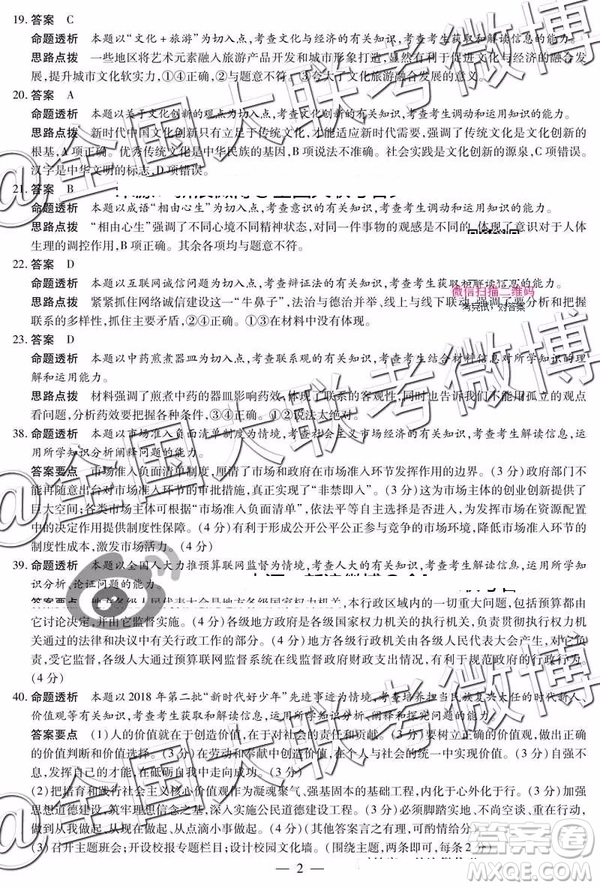 19. 答案 C
命题透析 本题以“文化＋旅游”为切入点，考查文化与经济的有关知识，考查考生获取和解读信息的能力。
思路点拨 一些地区将艺术元素融入旅游产品开发和城市形象打造，显然有利于促进文化与经济的融合发
展，提升城市文化软实力，①④正确。②与题意不符。③夸大了文化旅游融合发展的意义。
20. 答案 A
命题透析 本题以关于文化创新的观点为切入点，考查文化创新的有关知识，考查考生调动和运用知识的能力。
思路点拨 新时代中国文化创新只有立足于传统文化，才能适应新时代的需要，强调了传统文化是文化创新
的根基，A项正确。优秀传统文化是中华民族的基因，B项不符合。社会实践是文化创新的源泉，C项错误。
汉字是中华文明的标志，D项错误。
21. 答案 B
命题透析 本题以成语“相由心生”为切入点，考查意识的有关知识，考查考生调动和运用知识的能力。
思路点拨 “相由心生”强调了不同心境不同精神状态，对同一件事物的观感是不同的，体现了意识对于人体
生理的调控作用，B项正确。其余各项均与题意不符。
22. 答案 D
命题透析 本题以互联网诚信问题为切入点，考查辩证法的有关知识，考查考生获取和解读信息的能力。
思路点拨 紧紧抓住网络诚信建设这一“牛鼻子”，法治与德治并举，线上与线下
微信扫描二维码
考完试，对答案
盾和主要矛盾，坚持系统优化的方法，②④正确。①③在材料中没有体现。
23. 答案 D
命题透析 本题以中药煎煮器皿为切入点，考查联系观的有关知识，考查考生结合材料信息对所学知识的理
解和运用能力。
思路点拨 材料强调了煎煮中药的器皿影响药效，体现了联系的客观性；同时也告诉我们不能用孤立的观点
看问题，分析药效要把握各种条件。①②说法太绝对。
38. 命题透析 本题以市场准入负面清单制度为情境，考查社会主义市场经济的有关知识，考查考生解读信息，运
用所学知识分析阐释问题的能力。
答案要点 市场准入负面清单制度，厘清了市场和政府在市场准入环节发挥作用的边界。（3分）政府部门不
能再随意出台对市场准入环节的审批措施，真正实现了“非禁即入”。（3分）这为市场主体的创业创新提供了
巨大空间；各类市场主体可依法平等进入“市场准入负面清单”，有利于发挥市场在资源配
作用提供制度性保障。（4分）有利于形成公开公平公正参与竞争的市场环境，降低市场准入环节的
制度性交易成本，激发市场活力。（4分）
39. 命题透析 本题以全国人大力推预算联网监督为情境，考查人大的有关知识，考查考生解读信息，运用所学知
识分析、论证问题的能力。
答案要点 地方各级人民代表大会是地方国家权力机关，本行政区域内的一切重大问题，包括预算都由
它讨论决定，并由它监督实施。（4分）各级地方政府是各级国家权力机关的执行机关，负责贯彻执行权力机关
通过的法律和决议中有关行政工作的部分。（4分）地方各级行政机关由各级人民代表大会产生，对它负责，
受它监督，各级人大通过预算联网监督系统在线监督政府财政支出与决算，有利于保障人民当家作主。
（4分）
40. 命题透析 本题以2018年第二批“新时代好少年”先进事迹为情境，考查培养担当民族复兴大任的时代新人、
价值观等有关知识，考查考生获取和解读信息、探究问题的能力。
答案要点 （1）人的价值就在于创造价值，在于对社会的责任和贡献。（3分）要树立正确的
的价值判断和价值选择。（3分）在劳动和奉献中创造价值，在个人与社会的统一中实现价值。（3分）坚定理
想，顽强拼搏，在砥砺自我中走向成功。（3分）
（2）把培育和践行社会主义核心价值观作为凝魂聚气、强基固本的基础工程，内化于心外化于行。（4分）加强
思想道德建设，筑牢理想信念之基，深入实施公民道德建设工程。（4分）必须脚踏实地、不尚空谈、重在行动，
从我做起，从现在做起，从点滴小事做起。（4分）（其他答案言之成理，可酌情给分）
（3）召开主题班会；开设校报专题栏目；设计校园文化墙。（围绕主题，两条即可，每条2分）
— 2 —
@全国大联考微博
答案圈
MXQE.COM